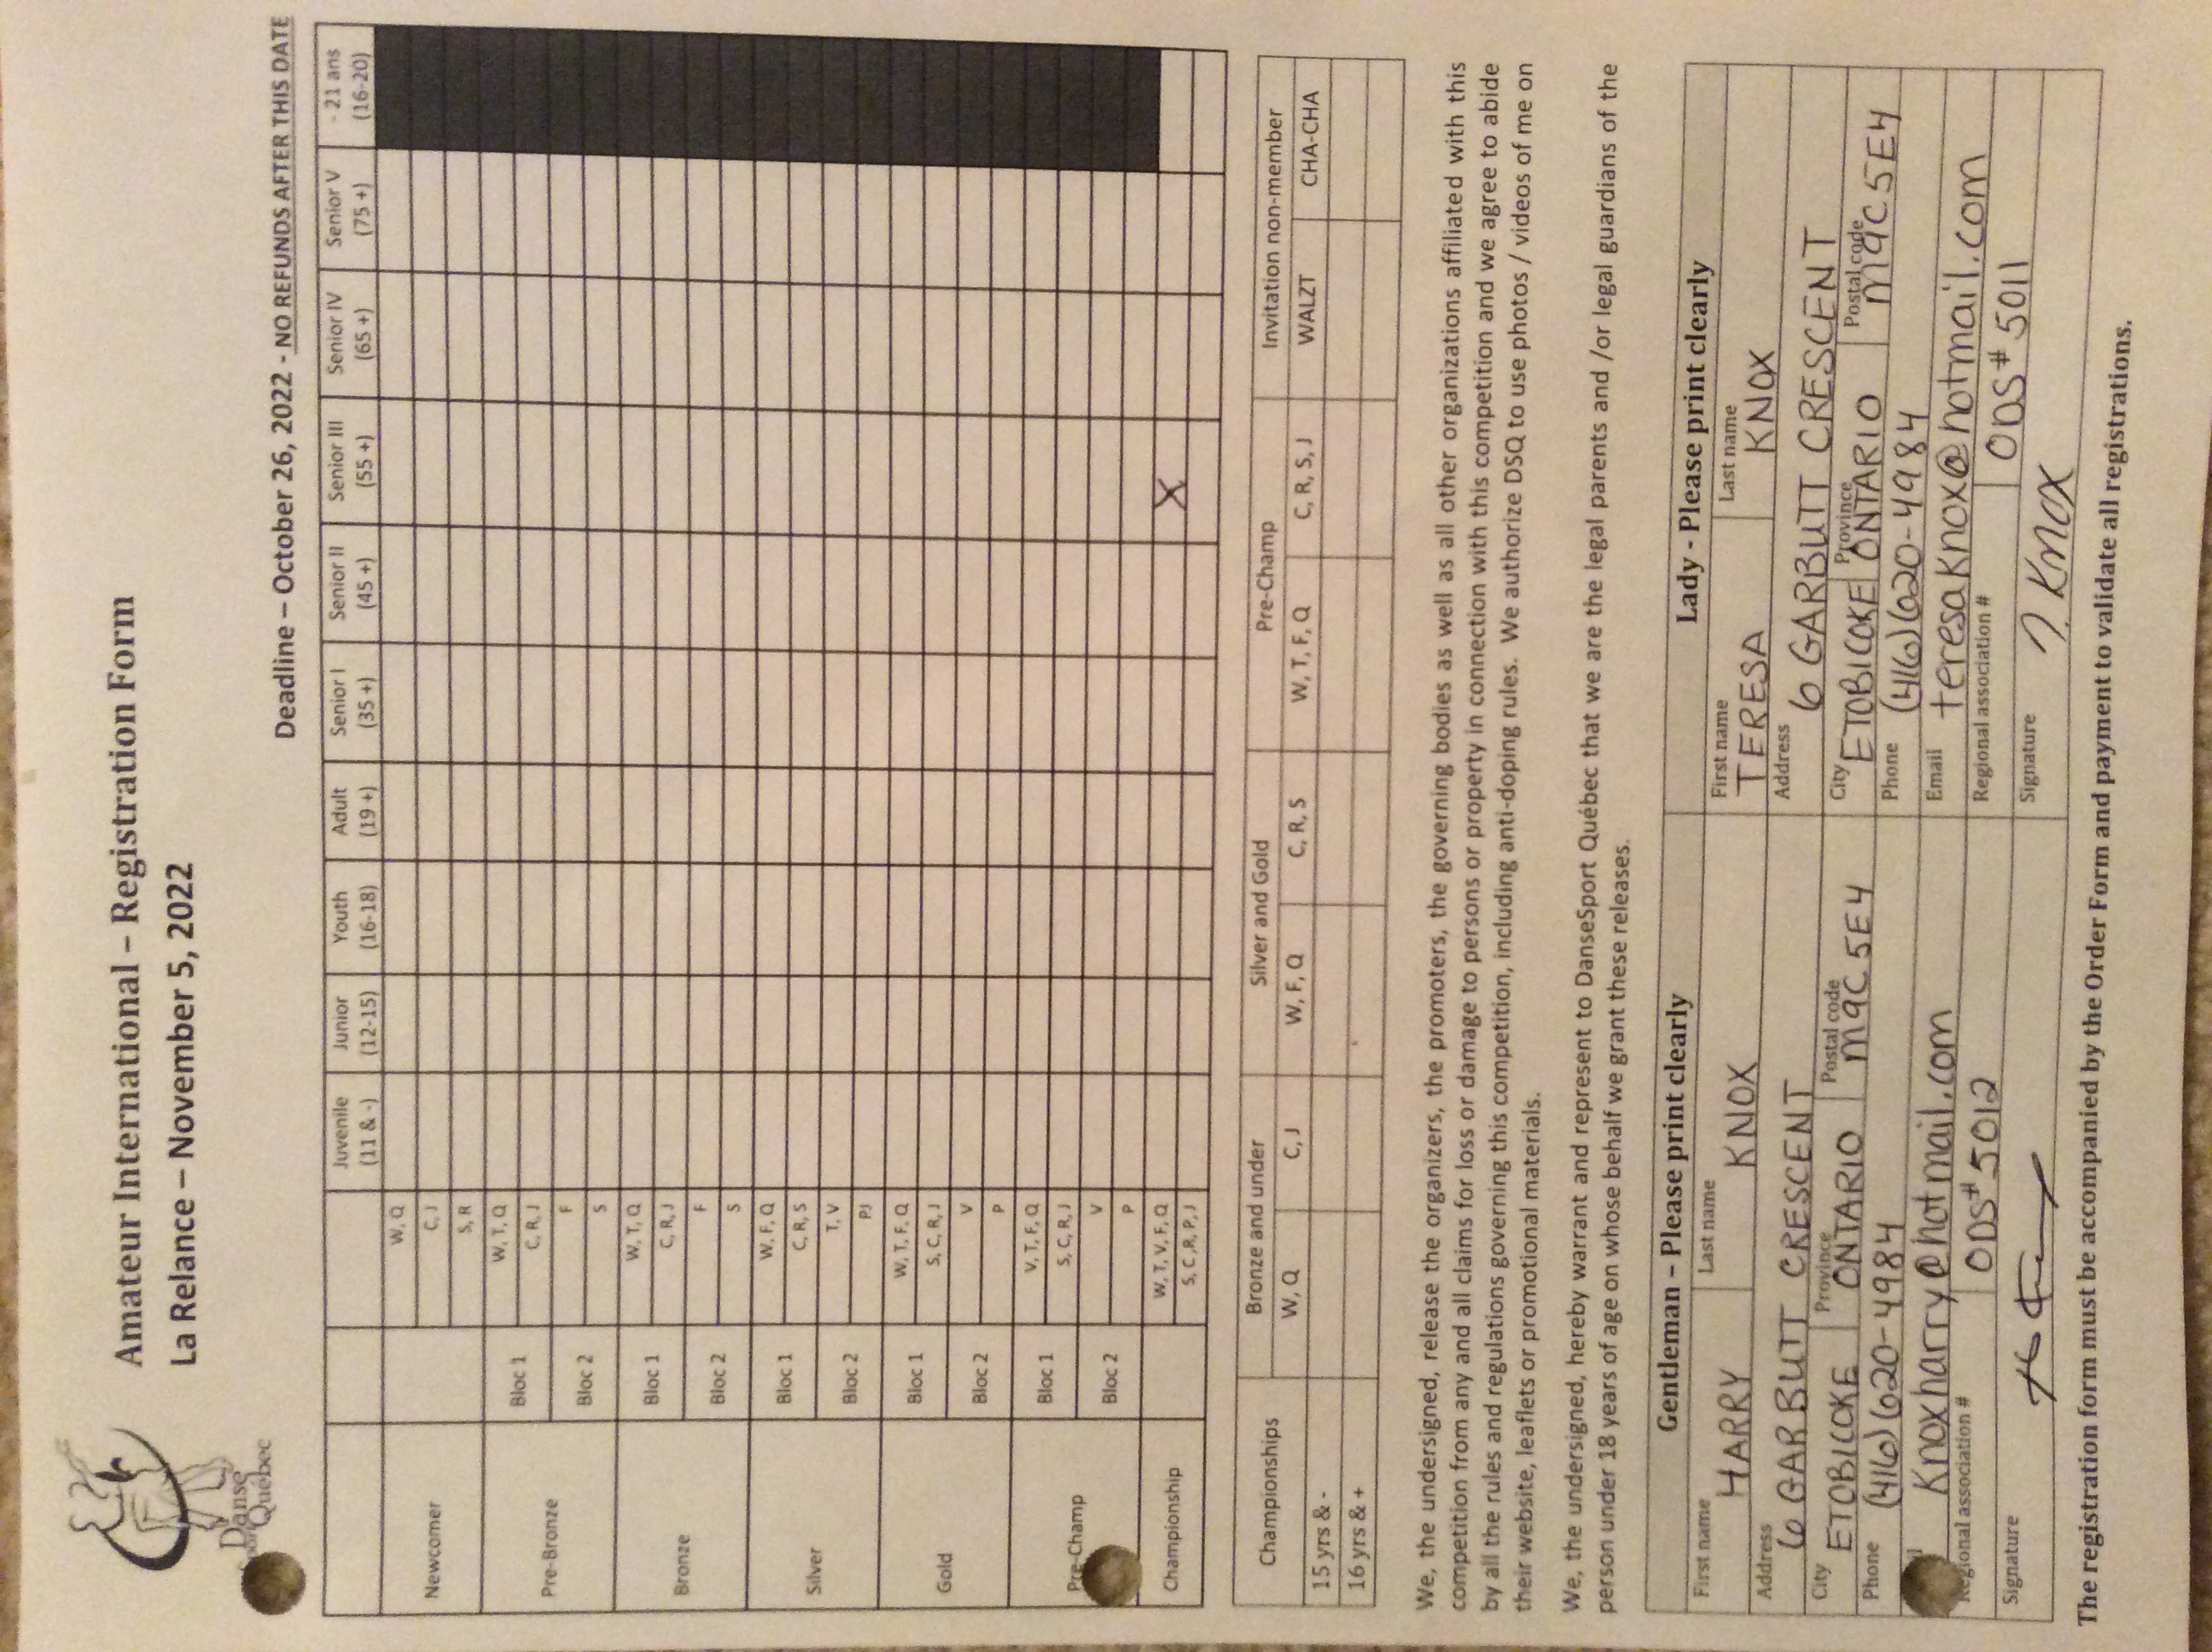 Danse
Sport
Québec
Amateur International – Registration Form
La Relance – November 5, 2022
Deadline – October 26, 2022 - NO REFUNDS AFTER THIS DATE
Juvenile (11 & -) Junior (12-15) Youth (16-18) Adult (19 +) Senior I (35 +) Senior II (45 +) Senior III (55 +) Senior IV (65 +) Senior V (75 +) - 21 ans (16-20)
Newcomer W, Q
C, J
S, R
Pre-Bronze Bloc 1 W, T, Q
C, R, J
Bloc 2 F
S
Bronze Bloc 1 W, T, Q
C, R, J
Bloc 2 F
S
Silver Bloc 1 W, F, Q
C, R, S
Bloc 2 T, V
PJ
Gold Bloc 1 W, T, F, Q
S, C, R, J
Bloc 2 V
P
Pre-Champ Bloc 1 V, T, F, Q
S, C, R, J
Bloc 2 V
P
Championship W, T, V, F, Q X
S, C ,R, P, J
Championships Bronze and under Silver and Gold Pre-Champ Invitation non-member
W, Q C, J W, F, Q C, R, S W, T, F, Q C, R, S, J WALZT CHA-CHA
15 yrs & -
16 yrs & +
We, the undersigned, release the organizers, the promoters, the governing bodies as well as all other organizations affiliated with this
competition from any and all claims for loss or damage to persons or property in connection with this competition and we agree to abide
by all the rules and regulations governing this competition, including anti-doping rules. We authorize DSQ to use photos / videos of me on
their website, leaflets or promotional materials.
We, the undersigned, hereby warrant and represent to DanseSport Québec that we are the legal parents and /or legal guardians of the
person under 18 years of age on whose behalf we grant these releases.
Gentleman – Please print clearly Lady - Please print clearly
First name HARRY Last name KNOX First name TERESA Last name KNOX
Address 6 GARBUTT CRESCENT Address 6 GARBUTT CRESCENT
City ETOBICOKE Province ONTARIO Postal code M9C 5E4 City ETOBICOKE Province ONTARIO Postal code M9C 5E4
Phone (416) 620-4984 Phone (416) 620-4984
knoxharry@hotmail.com Email teresaknox@hotmail.com
Regional association # ODS# 5012 Regional association # ODS# 5011
Signature Signature T. Knox
The registration form must be accompanied by the Order Form and payment to validate all registrations.